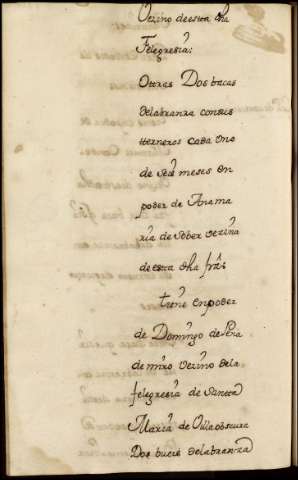 Vezino de esta dha
Felegresia:
Otras Dos bacas
de labranza con sus
terneros cada uno
de seis meses en
poder de Anama
ria de Sober vezina
de esta dha fra:
tiene en poder
de Domingo de Pena
de miro vezino de la
felegresia de Santa
Maria de Villabscura
Dos bueis de labranza